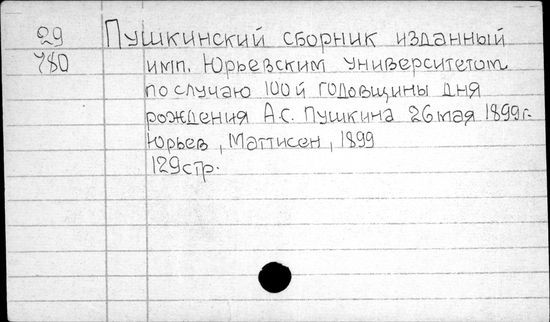 29 Пушкинский сборник изданный
780 имп. Юрьевским университетом
по случаю 100й годовщины дня
рождения А.С. Пушкина 26 мая 1899 г.
Юрьев, Маттисен, 1899
129 стр.